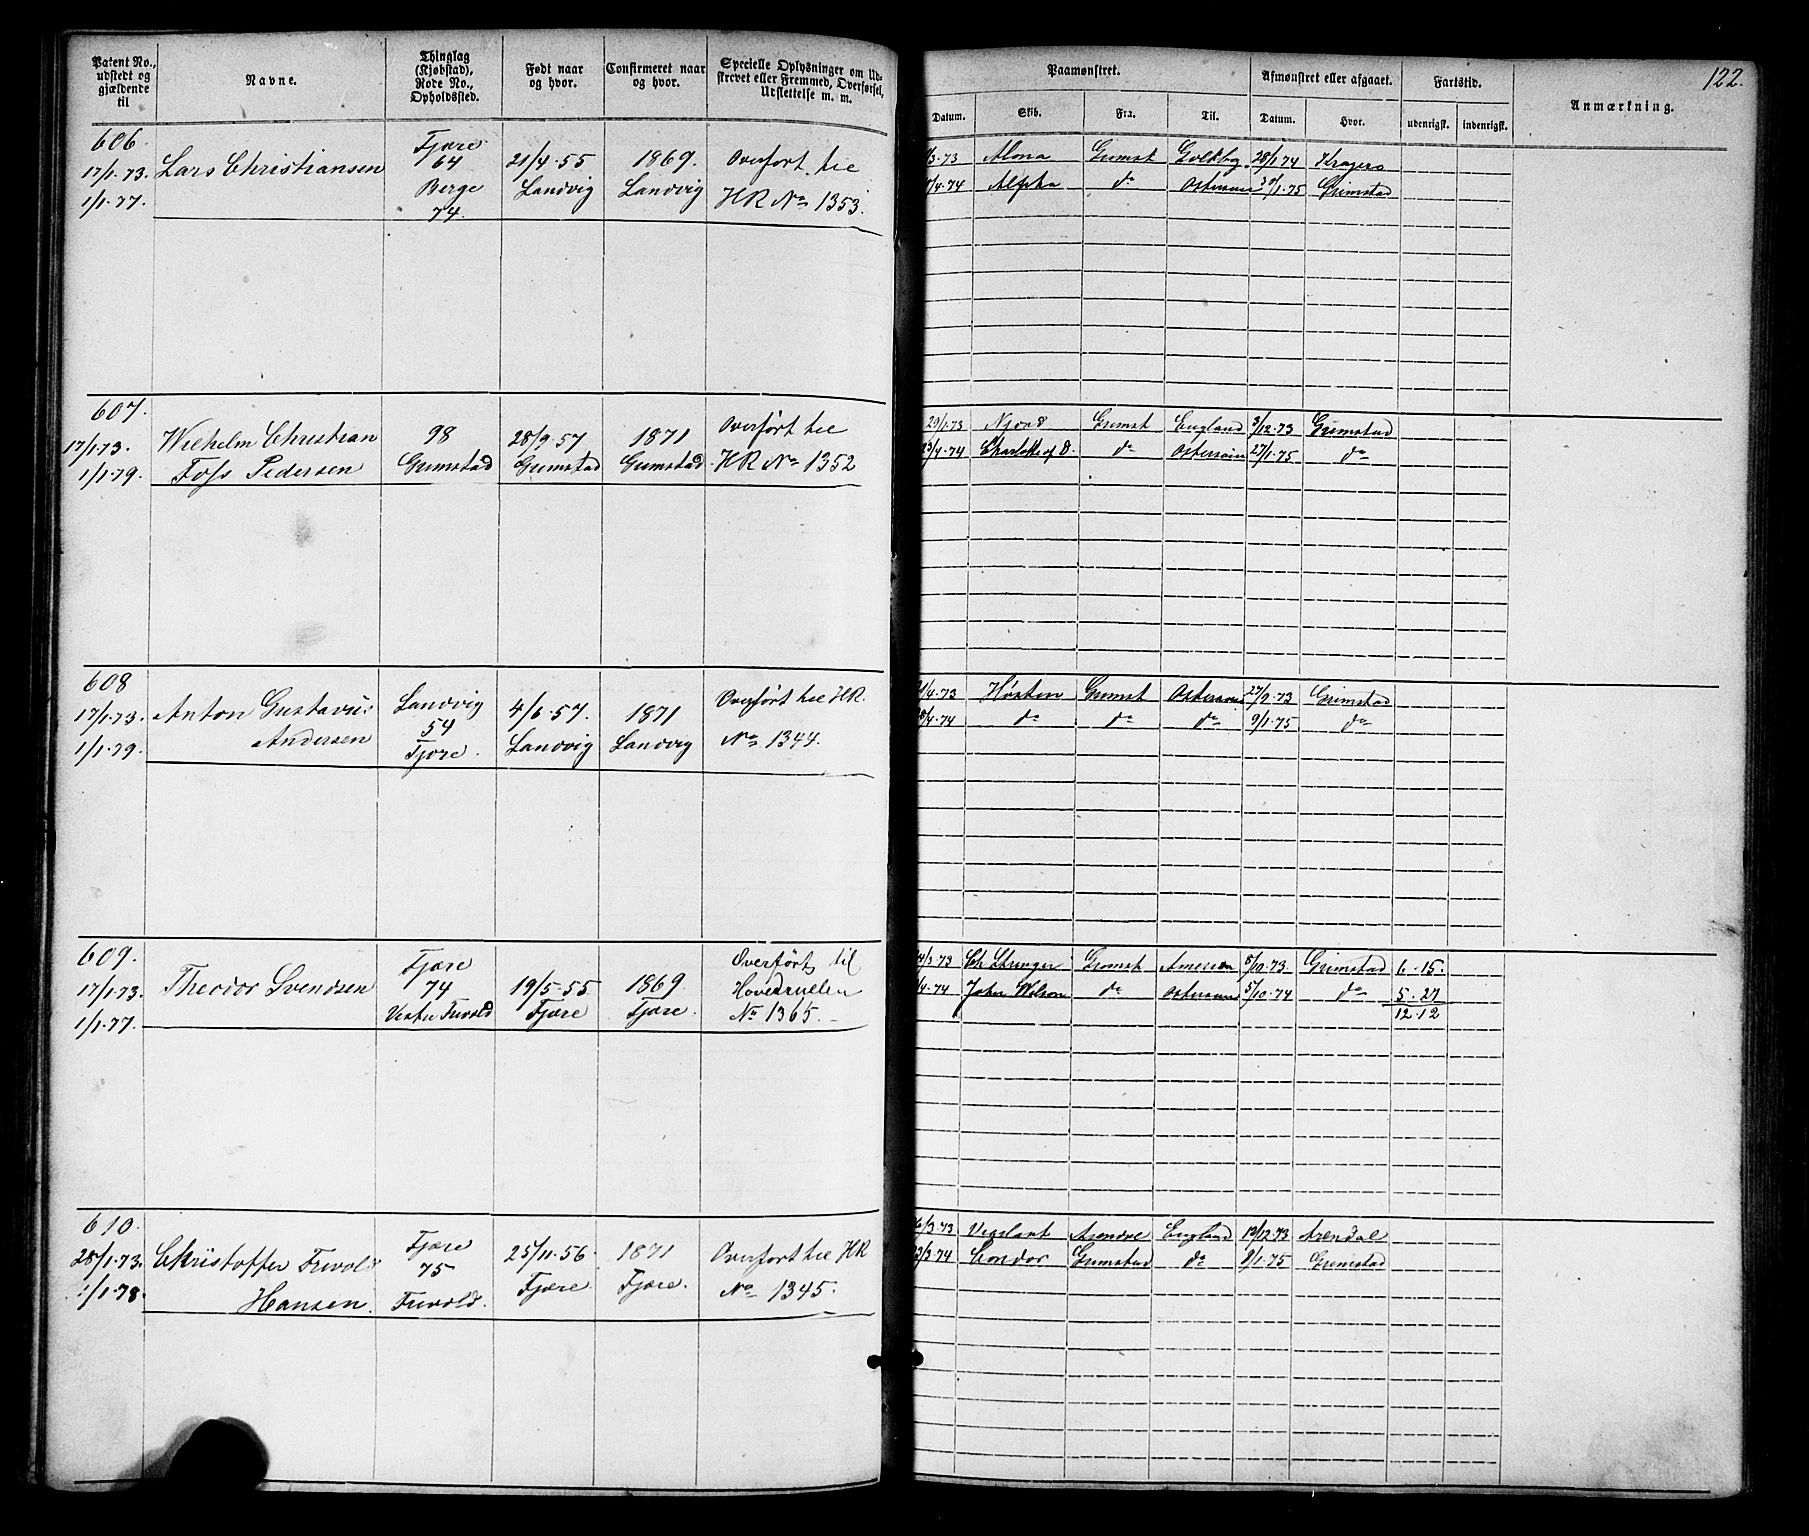 Patent No., udstedt og gjældende til
Navne.
Thinglag (Kjøbstad), Rode No., Opholdssted.
Født naar og hvor.
Confirmeret naar og hvor.
Specielle Oplysninger om Udskrevet eller Fremmed, Overførsel, Udslettelse m. m.
Paamønstret.
Afmønstret eller afgaaet.
Fartstid.
Anmærkning.
122.
Datum.
Skib.
Fra.
Til.
Datum.
Hvor.
udenrigsk.
indenrigsk.
606
17/1.73.
1/1.77.
Lars Christiansen
Fjære
64
Berge
74.
21/4.55
Landvig
1869.
Landvig
Overført til
HR No 1353.
3.73 Alona Grimst 28/1 74 Kragerø
4.74 Alpha do Østersøen 1.75 Grimstad
607.
17/1.73.
1/1.79.
Wilhelm Christian
Foss Pedersen
98
Grimstad
28/9.57
Grimstad
1871
Grimstad.
Overført til
HR No 1352
29/1.73 Njord Grimst England 3/12.73 Grimstad
23/4.74 Charlotte af D. do Østersøen 27/1.75 do
608
17/1.73.
1/1.79.
Anton Gustavus
Andersen
Landvig
54
Fjære.
4/6.57.
Landvig
1871
Landvig
Overført til HR.
No 1344.
/4.73 Høsten Grimst Østersøen 27/2.73 Grimstad
/4.74 do do do 9/1.75 do
609.
17/1.73.
1/1.77.
Theodor Svendsen
Fjære
74
Vestre Frivold
19/5.55
Fjære
1869
Fjære.
Overført til
Hovedrullen
No 1365.
3.73 Ch Stenger Grimst America 8/10.73 Grimstad 6.15.
4.74 John Wilson do Østersøen 5/10.74 do 5.27
12.12
610.
28/1.73.
1/1.78.
Christoffer Frivold
Hansen.
Fjære
75
Frivold.
25/11.56.
Fjære
1871
Fjære.
Overført til HR
No 1345.
6/3.73 Vigilant Arendal England 19/12.73 Arendal
3.74 Condor Grimstad do 9/1.75 Grimstad